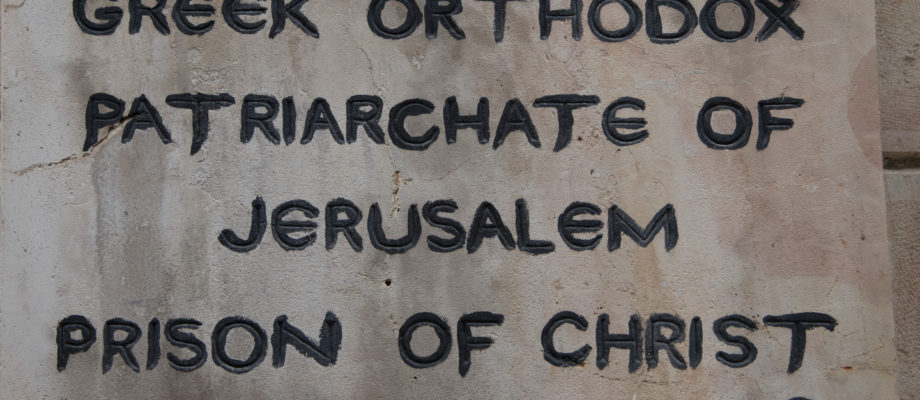 GREEK ORTHODOX
PATRIARCHATE OF
JERUSALEM
PRISON OF CHRIST